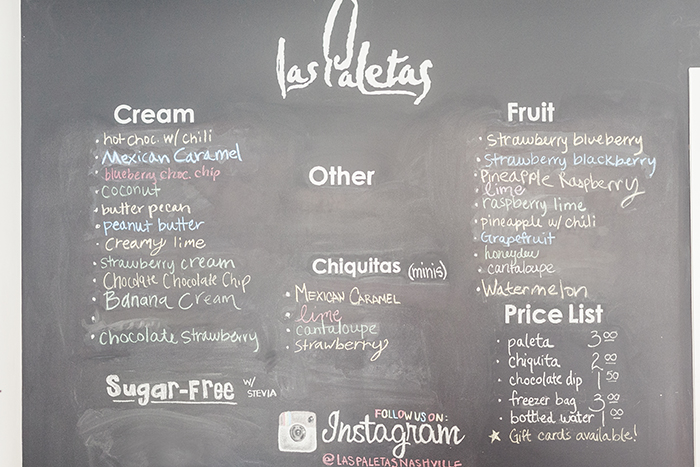 Las Paletas
Cream
• hot choc. w/ chili
• Mexican Caramel
• blueberry choc. chip
• coconut
• butter pecan
• peanut butter
• Creamy lime
• Strawberry cream
• Chocolate Chocolate Chip
• Banana Cream
•
• Chocolate Strawberry
Sugar-Free w/ STEVIA
Other
Chiquitas (minis)
• MEXICAN CARAMEL
• lime
• cantaloupe
• strawberry
FOLLOW US ON:
Instagram
@LASPALETASNASHVILLE
Fruit
• Strawberry blueberry
• Strawberry blackberry
• Pineapple Raspberry
• lime
• raspberry lime
• pineapple w/ chili
• Grapefruit
• honeydew
• cantaloupe
• Watermelon
Price List
• paleta 3.00
• chiquita 2.00
• chocolate dip 1.50
• freezer bag 3.00
• bottled water 1.00
★ Gift cards available!